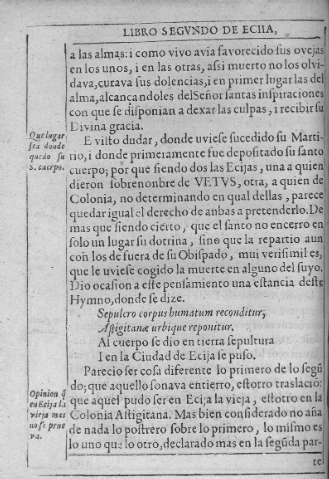 LIBRO SEGVNDO DE ECIIA,
a las almas: i como vivo avia favorecido sus ovejas
en los unos, i en las otras, assi muerto no los olvi-
dava, curava sus dolencias, i en primer lugar las del
alma, alcançandoles del Señor santas inspiraciones
con que se disponian a dexar las culpas, i recibir su
Divina gracia.
Que lugar
sea donde
quedo su
S. cuerpo.
E visto dudar, donde uviese sucedido su Marti-
rio, i donde primeramente fue depositado su santo
cuerpo; por que siendo dos las Ecijas, una a quien
dieron sobrenonbre de VETVS, otra, a quien de
Colonia, no determinando en qual dellas, parece
quedar igual el derecho de anbas a pretenderlo. De
mas que siendo cierto, que el santo no encerro en
solo un lugar su dotrina, sino que la repartio aun
con los de fuera de su Obispado, mui verisimil es,
que le uviese cogido la muerte en alguno del suyo.
Dio ocasion a este pensamiento una estancia deste
Hymno, donde se dize.
Sepulcro corpus humatum reconditur,
Astigitanæ urbique reponitur.
Al cuerpo se dio en tierra sepultura
I en la Ciudad de Ecija se puso.
Parecio ser cosa diferente lo primero de lo segũ
do; que aquello sonava entierro, estotro traslaciõ:
Opinion q̃
en Ecija la
vieja mar
no se prue
va.
que aquel pudo ser en Ecija la vieja, estotro en la
Colonia Astigitana. Mas bien considerado no aña
de nada lo postrero sobre lo primero, lo mismo es
lo uno que lo otro, declarado mas en la segũda par-
te